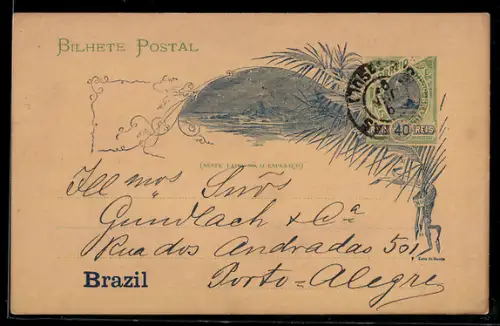 BILHETE POSTAL
40 REIS
(NESTE LADO SÓ O ENDEREÇO)
Ill mos Snrs
Gundlach & Ca
Rua dos Andradas 501
Porto-Alegre
Brazil